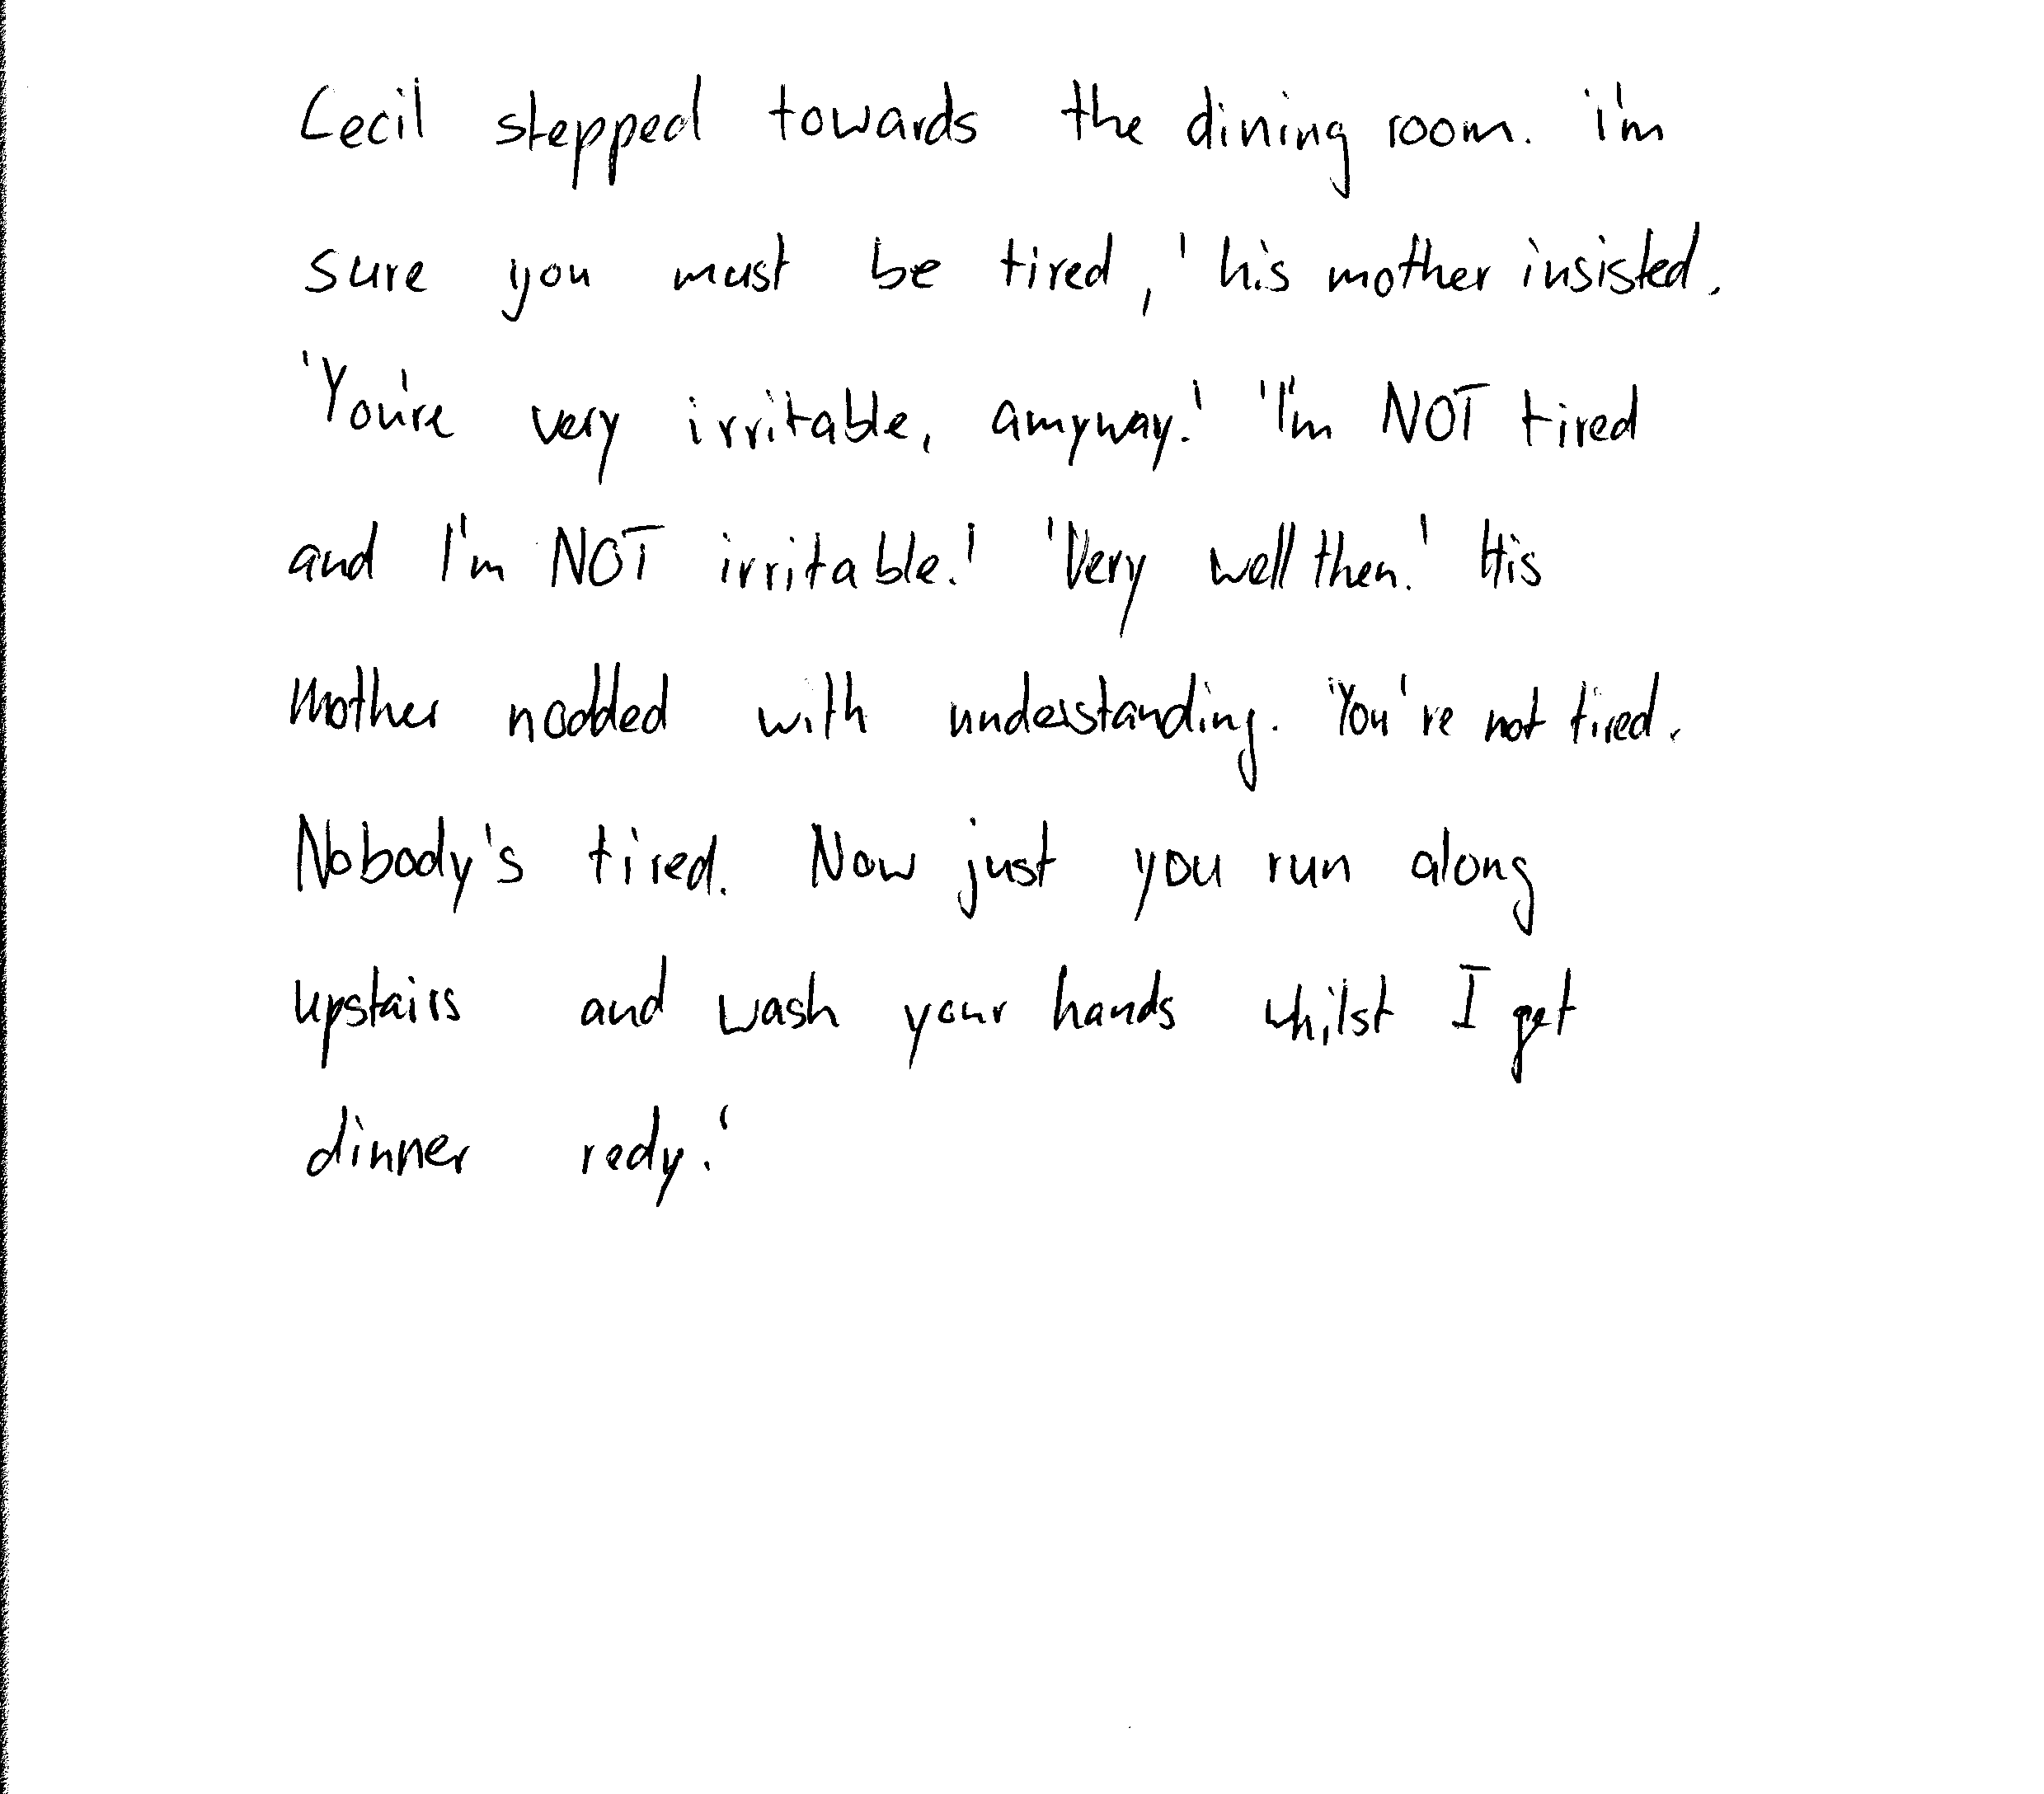 Cecil stepped towards the dining room. 'I'm
sure you must be tired,' his mother insisted.
'You're very irritable, amyway.' 'I'm NOT tired
and I'm NOT irritable.' 'Very well then.' His
mother nodded with understanding. 'You're not tired.
Nobody's tired. Now just you run along
upstairs and wash your hands whilst I get
dinner redy.'